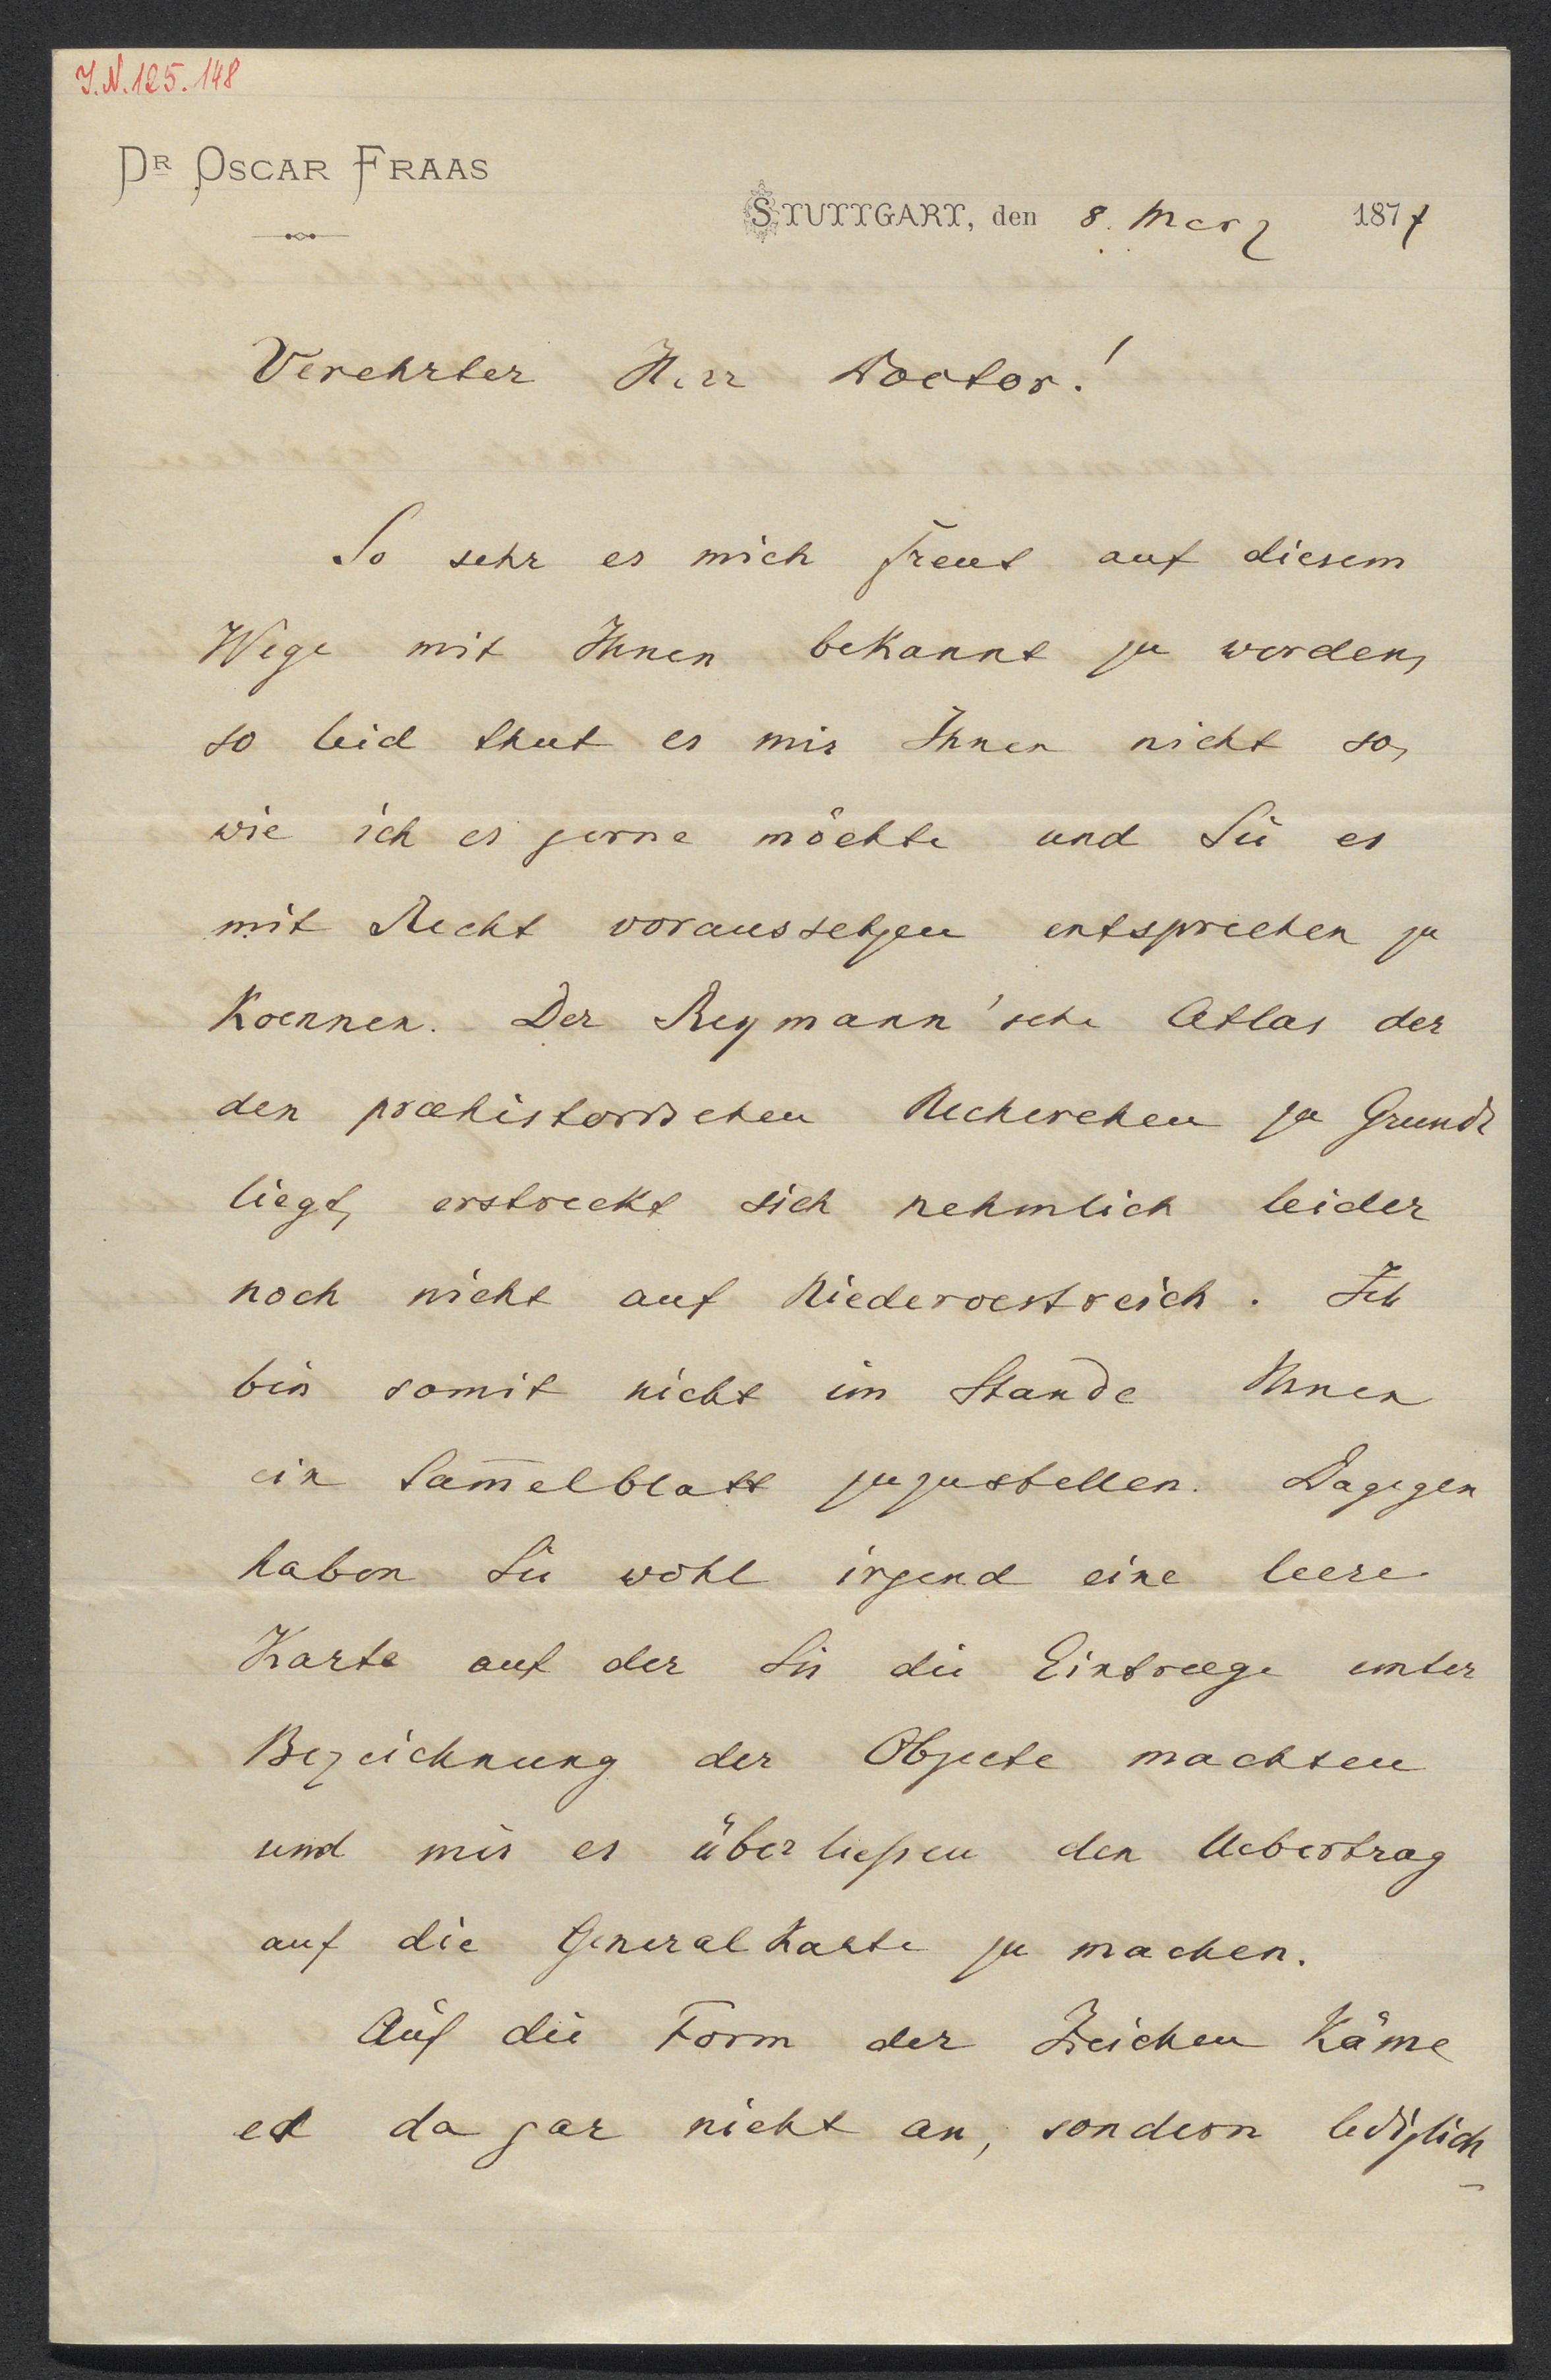 J.N.125.148
DR OSCAR FRAAS
STUTTGART, den 8. Merz 1877
Verehrter Herr Doctor!
So sehr es mich freut auf diesem
Wege mit Ihnen bekannt zu werden,
so leid thut es mir Ihnen nicht so,
wie ich es gerne möchte und Sie es
mit Recht voraussetzen entsprechen zu
Koennen. Der Reymann'sche Atlas der
den præhistorischen Recherchen zu Grunde
liegt, erstreckt sich nehmlich leider
noch nicht auf Niederoestreich. Ich
bin somit nicht im Stande Ihnen
ein Sam̄elblatt zuzustellen. Dagegen
haben Sie wohl irgend eine leere
Karte auf der Sie die Eintræge unter
Bezeichnung der Objecte machten
und mir es überließen den Uebertrag
auf die Generalkarte zu machen.
Auf die Form der Zeichen Käme
es da gar nicht an, sondern lediglich